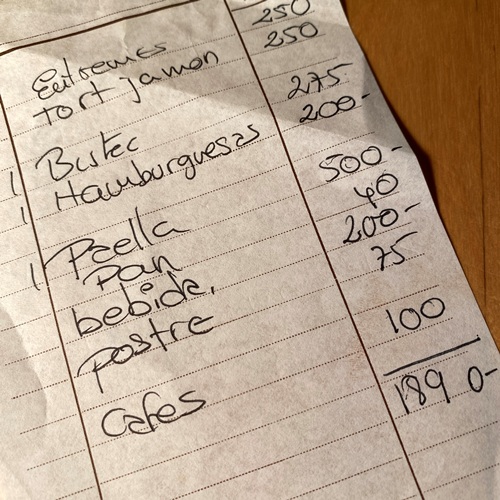 Entremes 250
tort jamon 250
1 Bistec 275
1 Hamburguesas 200-
1 Paella 500-
Pan 40
bebida, 200-
postre 75
Cafes 100
1890-